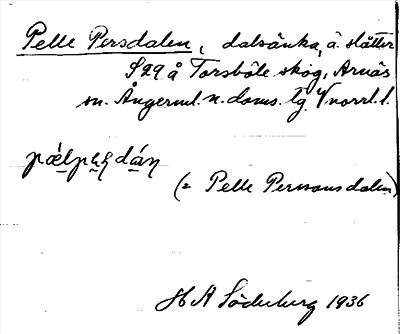 Pelle Persdalen, dalsänka, ä. slåtter
S29 å Torsböle skog, Arnäs
sn. Ångerml. n. doms. lg. V norrl. l.
(= Pelle Perssons dalen)
H A Söderberg 1936